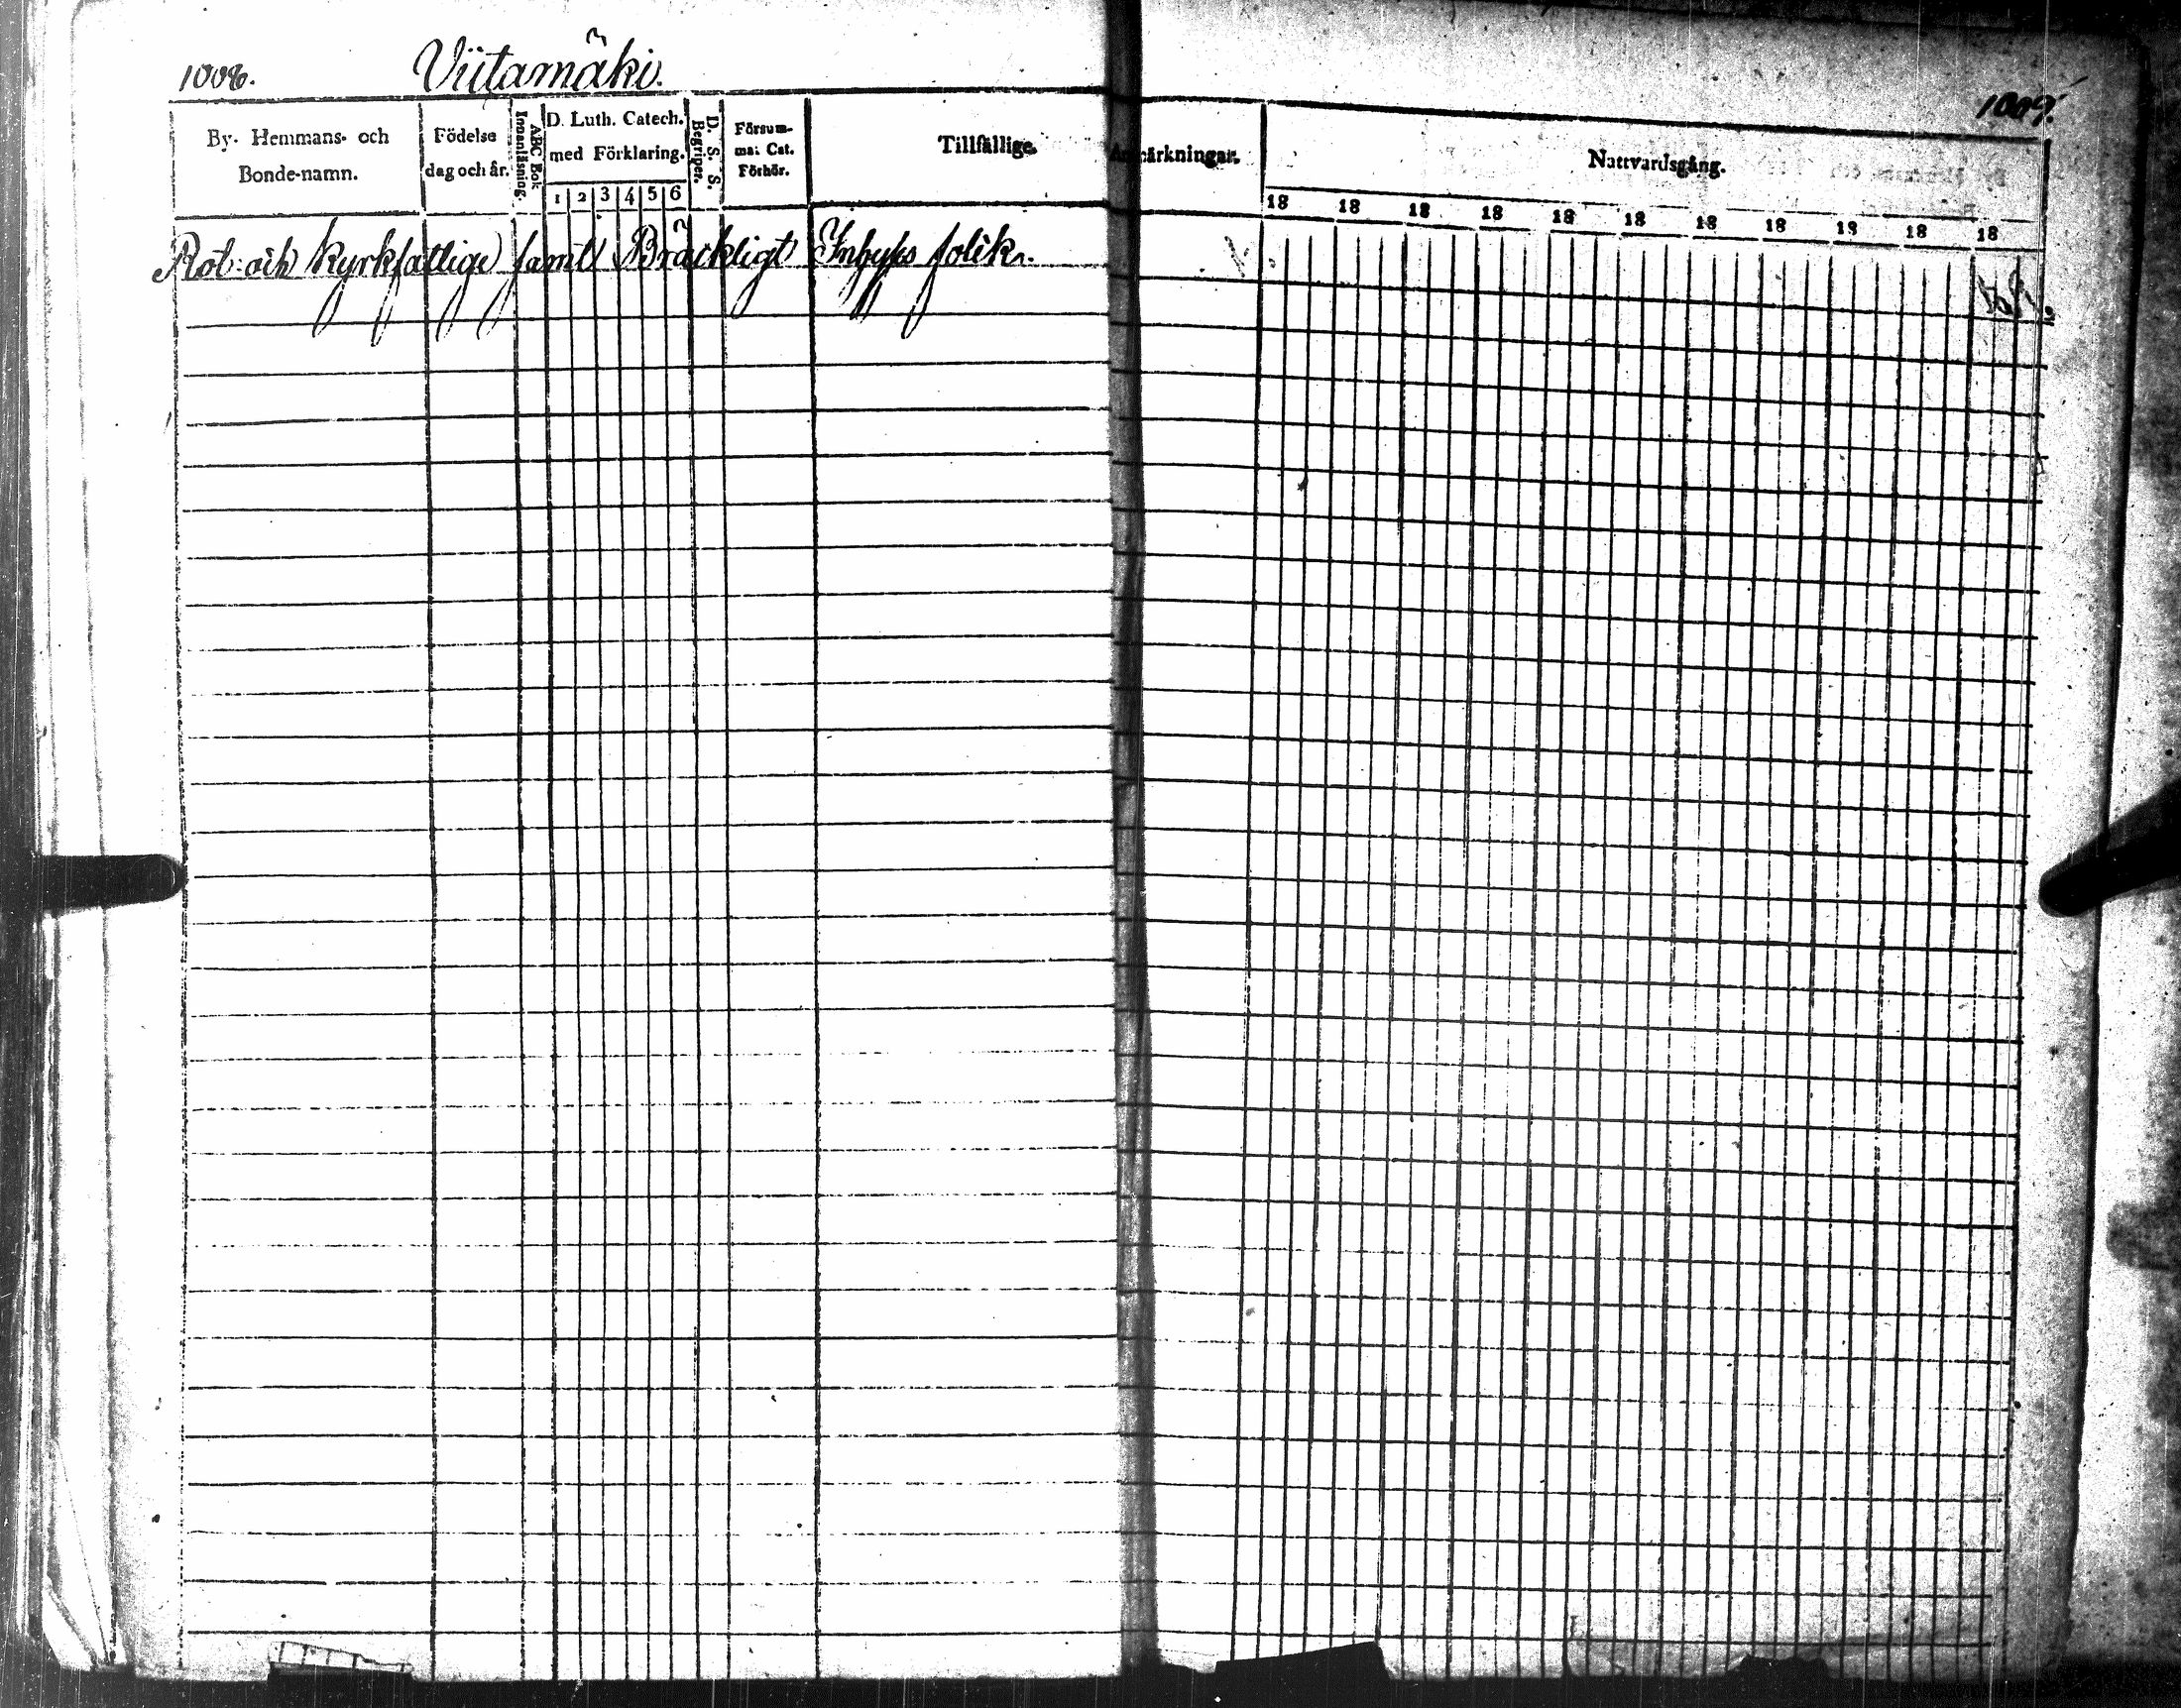 1008.
Viitamäki.
1009.
By- Hemmans- och
Bonde-namn.
Födelse
dag och år.
ABC Bok
Innanläsning.
D. Luth. Catech.
med Förklaring.
1 2 3 4 5 6
D. S. S.
Begriper.
Försum-
mat Cat.
Förhör.
Tillfällige Anmärkningar.
Nattvardsgång.
18 18 18 18 18 18 18 18 18 18 18
Rot- och kyrkfattige samt Bräckligt Inhyses folck.